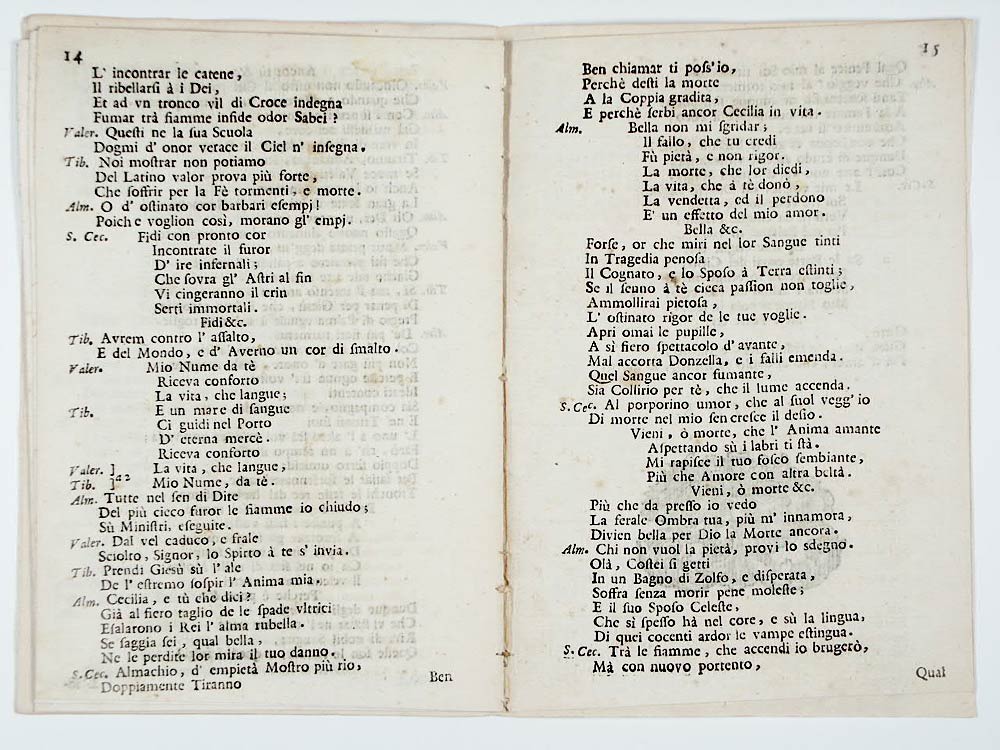 14
L' incontrar le catene,
Il ribellarſi à i Dei,
Et ad vn tronco vil di Croce indegna
Fumar trà fiamme infide odor Sabei?
Valer. Queſti ne la ſua Scuola
Dogmi d' onor verace il Ciel n' inſegna.
Tib. Noi moſtrar non potiamo
Del Latino valor prova più forte,
Che ſoffrir per la Fè tormenti, e morte.
Alm. O d' oſtinato cor barbari eſempj!
Poiche voglion così, morano gl' empj.
S. Cec. Fidi con pronto cor
Incontrate il furor
D' ire infernali;
Che ſovra gl' Aſtri al fin
Vi cingeranno il crin
Serti immortali.
Fidi &c.
Tib. Avrem contro l' aſſalto,
E del Mondo, e d' Averno un cor di ſmalto.
Valer. Mio Nume da tè
Riceva conforto
La vita, che langue;
Tib. E un mare di ſangue
Ci guidi nel Porto
D' eterna mercè.
Riceva conforto
Valer. ] La vita, che langue,
Tib. ] a 2 Mio Nume, da tè.
Alm. Tutte nel ſen di Dite
Del più cieco furor le fiamme io chiudo;
Sù Miniſtri, eſeguite.
Valer. Dal vel caduco, e frale
Sciolto, Signor, lo Spirto à te s' invia.
Tib. Prendi Giesù sù l' ale
De l' eſtremo ſoſpir l' Anima mia.
Alm. Cecilia, e tù che dici?
Già al fiero taglio de le ſpade vltrici
Eſalarono i Rei l' alma rubella.
Se ſaggia ſei, qual bella,
Ne le perdite lor mira il tuo danno.
S. Cec. Almachio, d' empietà Moſtro più rio,
Doppiamente Tiranno
Ben
15
Ben chiamar ti poſs' io,
Perchè deſti la morte
A la Coppia gradita,
E perchè ſerbi ancor Cecilia in vita.
Alm. Bella non mi ſgridar;
Il fallo, che tu credi
Fù pietà, e non rigor.
La morte, che lor diedi,
La vita, che à tè donò,
La vendetta, ed il perdono
E' un effetto del mio amor.
Bella &c.
Forſe, or che miri nel lor Sangue tinti
In Tragedia penoſa
Il Cognato, e lo Spoſo à Terra eſtinti;
Se il ſenno à tè cieca paſſion non toglie,
Ammollirai pietoſa,
L' oſtinato rigor de le tue voglie.
Apri omai le pupille,
A sì fiero ſpettacolo d' avante,
Mal accorta Donzella, e i falli emenda.
Quel Sangue ancor fumante,
Sia Collirio per tè, che il lume accenda.
S. Cec. Al porporino umor, che al ſuol vegg' io
Di morte nel mio ſen creſce il deſio.
Vieni, ò morte, che l' Anima amante
Aſpettando sù i labri ti ſtà.
Mi rapiſce il tuo foſco ſembiante,
Più che Amore con altra beltà.
Vieni, ò morte &c.
Più che da preſſo io vedo
La ferale Ombra tua, più m' innamora,
Divien bella per Dio la Morte ancora.
Alm. Chi non vuol la pietà, provi lo ſdegno.
Olà, Coſtei ſi getti
In un Bagno di Zolfo, e diſperata,
Soffra ſenza morir pene moleſte;
E il ſuo Spoſo Celeſte,
Che sì ſpeſſo hà nel core, e sù la lingua,
Di quei cocenti ardor le vampe eſtingua.
S. Cec. Trà le fiamme, che accendi io brugerò,
Mà con nuovo portento,
Qual